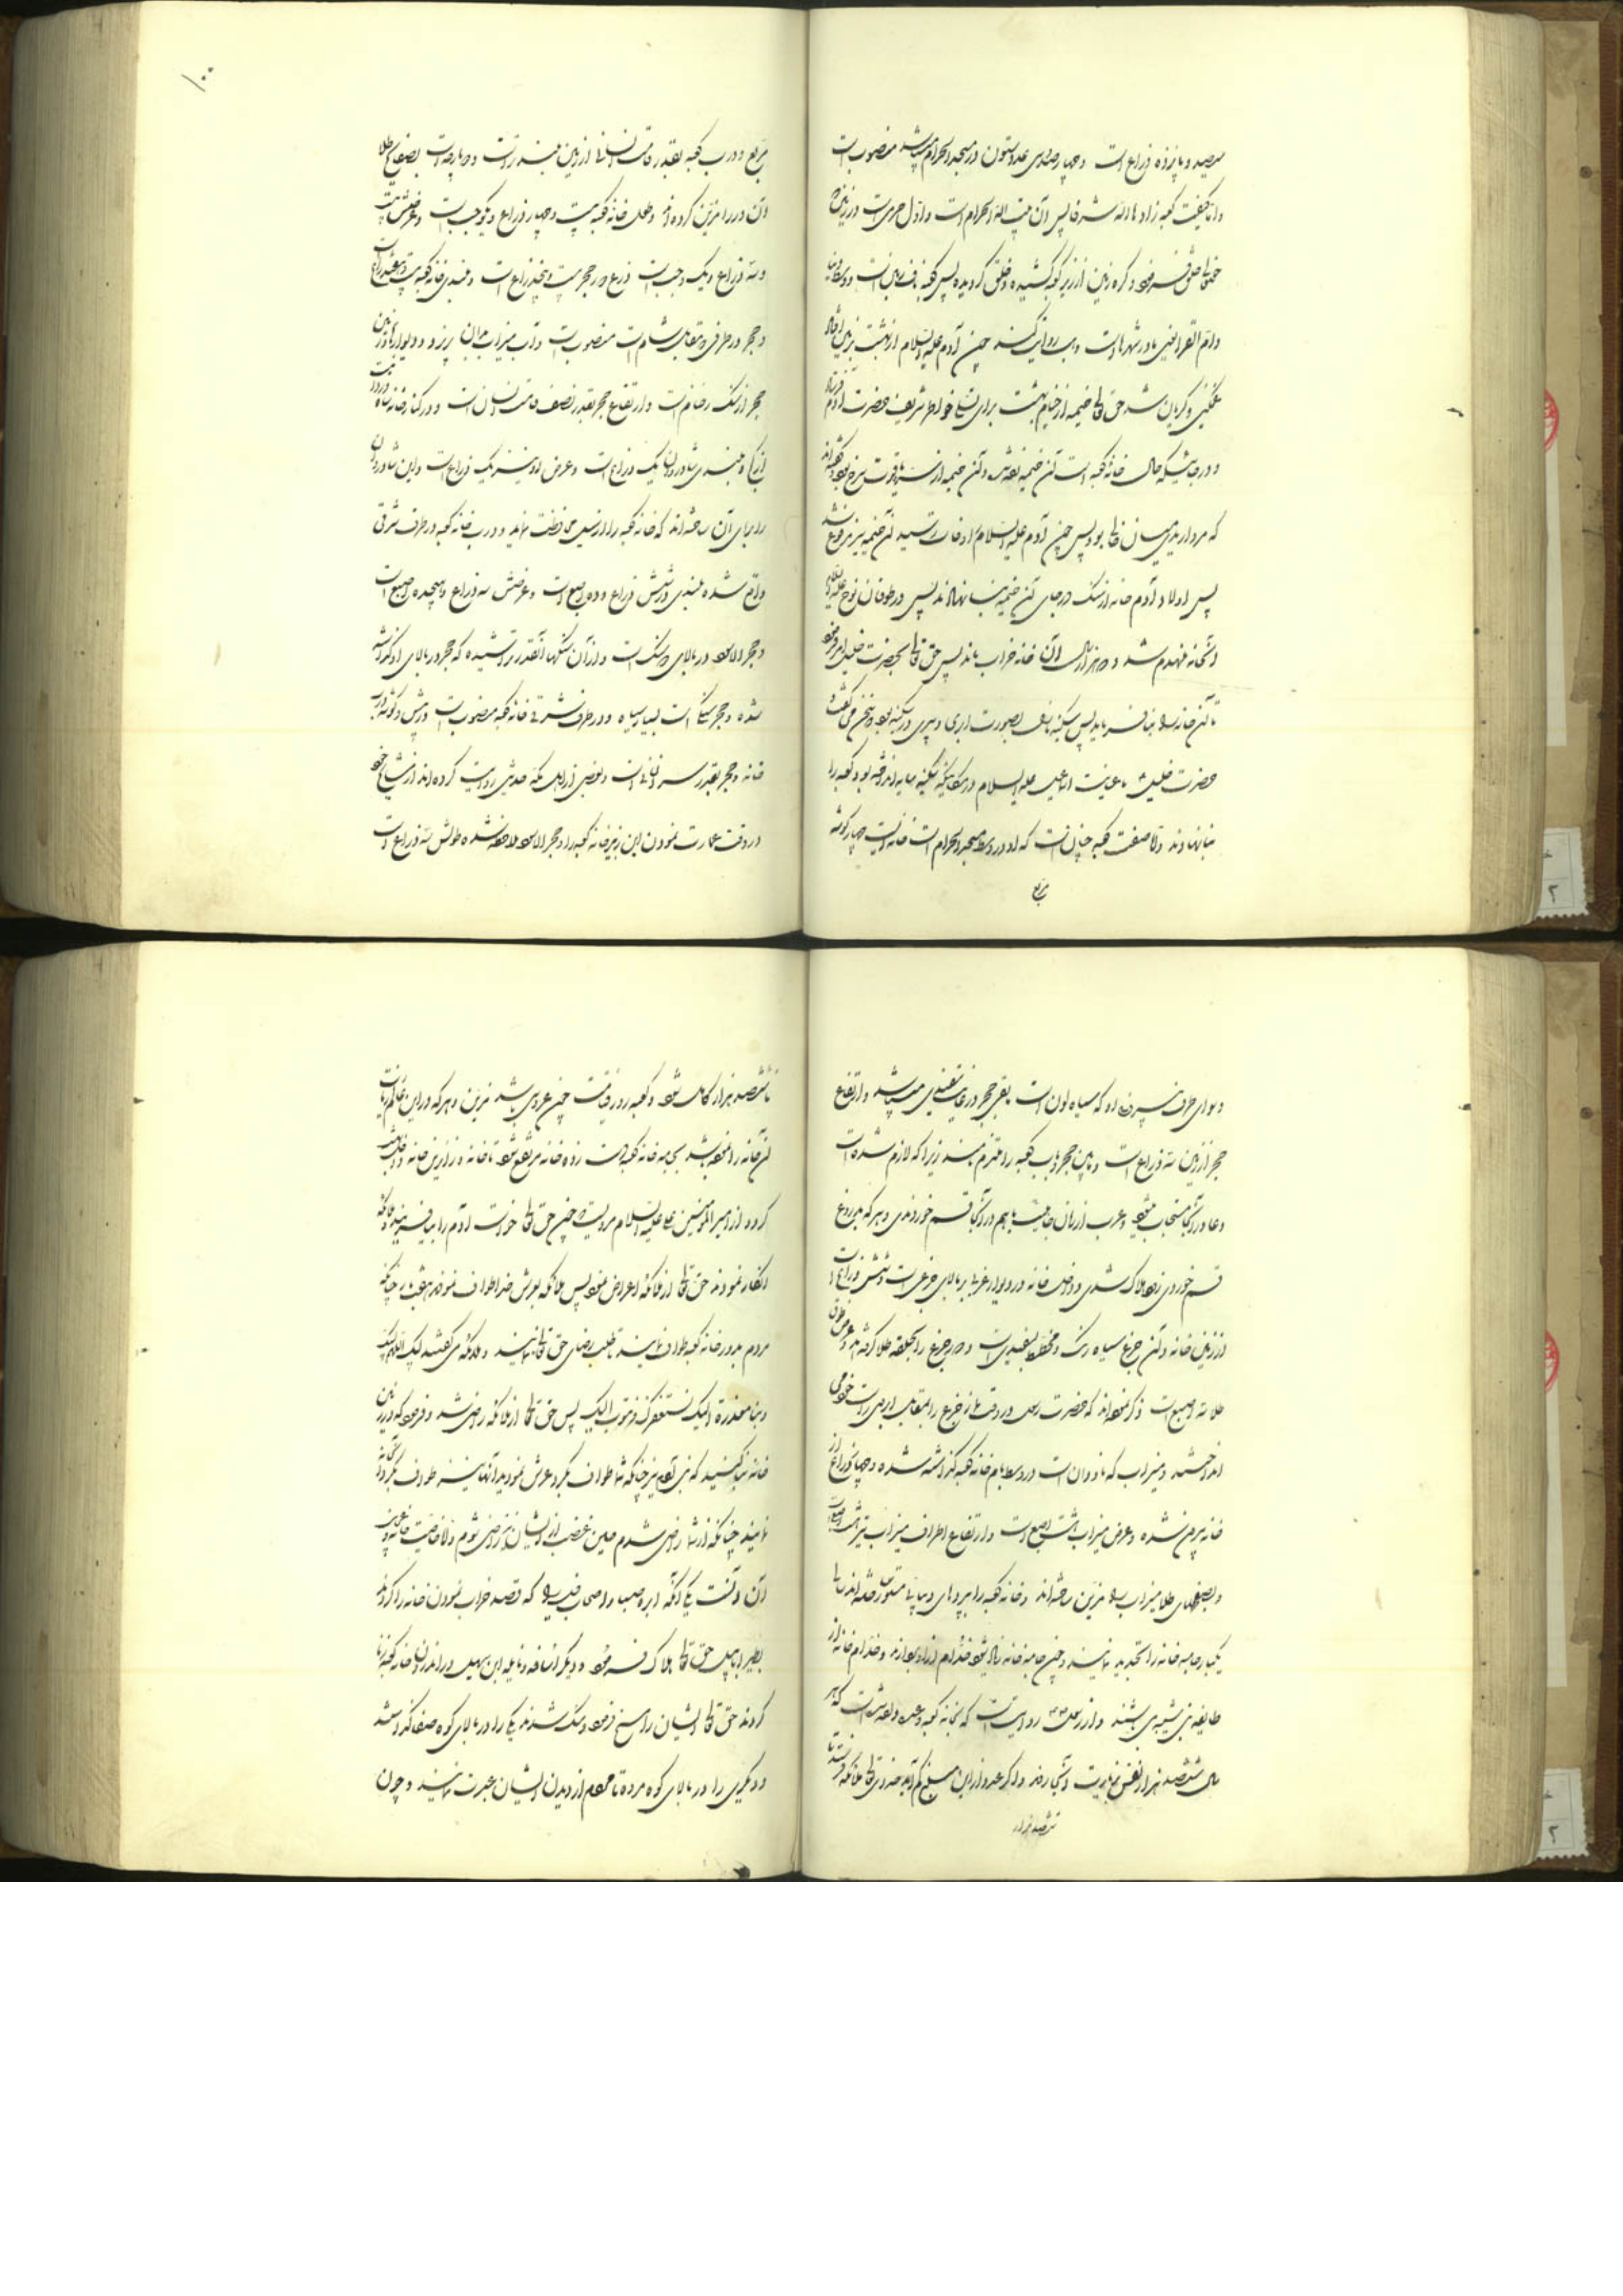 سیصد و پانزده ذراع است و چهار صد و سی عدد ستون در مسجد الحرام میباشد منصوب است
و اما کیفیت کعبه زادها الله شرفا پس آن بیت الله الحرام است و اول حرمی است در زمین
خدای تعالی خلق فرمود و کره زمین از زیر کعبه کشیده و خلق گردیده پس کعبه ناف زمین است و وسط دنیا
و ام القری یعنی مادر شهرها است چون آدم علیه السلام از بهشت بزمین
غمگین و گریان شد حق تعالی خیمه از خیام بهشت برای تسلی خواطر شریف حضرت آدم فرستاد
و در جائیکه حال خانه کعبه است آن خیمه و آن خیمه از یاقوت سرخ بود
که مروارید میان خالی بود پس چون آدم علیه السلام وفات رسید آن خیمه نیز مرفوع شد
پس اولاد آدم خانه از سنگ در جای آن خیمه بنا نهادند پس در طوفان نوح علیه السلام
آنخانه منهدم شد و دو هزار سال آن خانه خراب ماند پس حق تعالی بحضرت خلیل امر فرمود
تا آن خانه را بنا فرماید پس سکینه بصورت ابری و سری در سکینه بود و سخن می گفت
حضرت خلیل با عانیت اسماعیل علیه السلام در مکانیکه سکینه سایه انداخته بود کعبه را
بنا نهادند و اما صفت کعبه چنان است که او در وسط مسجد الحرام است خانه ایست چهار گوشه
مربع
۱۰۰
مربع و درب کعبه بقدر قامت انسانی از زمین بلند تر است و دو پارچه است بصفایح طلا
و آن در را مزین کرده اند و طول خانه کعبه بیست و چهار ذراع و یکوجب است و عرضش بیست
و سه ذراع و یک وجب است ذرع دور حجر بیست و پنجذراع است و بلندی خانه کعبه بیست و هفت ذراع است
و حجر در طرفی که مقابل شام است منصوب است و آب میزاب بدان ریزد و دیوارها و زمین
حجر از سنگ رخام است و ارتفاع حجر بقدر نصف قامت انسان است و در کنار خانه شادروان است
بلندی شادروان یک ذراع است و عرض او نیز یک ذراع است و این شادروان
را برای آن ساخته اند که خانه کعبه را از سیل محافظت نماید و درب خانه کعبه در طرف شرقی
واقع شده بلندی درش شش ذراع و ده اصبع است و عرضش سه ذراع و هیجده اصبع است
و حجر الاسود در بالای دو سنگ است و از آن سنگها آنقدر تراشیده که حجر در بالای او گذاشته
شده و حجر سنگی است بسیار سیاه و در طرف شرقی خانه کعبه منصوب است در پیش دو گوشه درب
خانه و حجر بقدر سر انسانی است و بعضی از اهل مکه حدیثی روایت کرده اند از مشایخ خود
در وقت عمارت نمودن ابن زبیر خانه کعبه را و حجر الاسود ملاحظه شده طولش سه ذراع است
و سوای طرف سر او که سیاه لون است بقیه حجر در غایت سفیدی میباشد و ارتفاع
حجر از زمین سه ذراع است و مابین حجر و باب کعبه را ملتزم نامند زیرا که لازم شده است
دعا در آنجا مستجاب میشود و عرب از زمان جاهلیت باهم در آنجا قسم خوردندی و هر که بدروغ
قسم خوردی زود هلاک شدی و داخل خانه در دیوار غربی بر بالای جزعی است و شش ذراع است
از زمین خانه و آن جزع سیاه رنگ و مخطط بسفیدی است و دور جزع را بحلقه طلا گرفته اند و عرض طوق
طلا سه اصبع است ذکر نموده اند که حضرت رسول در وقت نماز جزع را بمقابل ابروی راست خود می
انداختند و میزاب که ناودان است در وسط بام خانه کعبه گذاشته شده و چهار ذراع از
خانه بیرون شده و عرض میزاب هشت اصبع است و ارتفاع اطراف میزاب نیز هشت اصبع است
و بصفحهای طلا میزاب را مزین ساخته اند و خانه کعبه را بپرده های دیبائی مستور ساخته اند سالی
یکبار جامه خانه را تجدید نمایند و چون جامه خانه زیاد شود خدام از او بردارند و خدام خانه از
طایفه بنی شیبه می باشند و از رسول ص روایت است که بخانه کعبه وعده داده شده است که هر
سال ششصد هزار نفس بزیارت آنجا روند و اگر عدد از این مبلغ کم آید خدای تعالی ملائکه فرستد تا
ششصد هزار
تا ششصد هزار کامل شود و کعبه روز قیامت چون عروسی باشد مزین و هر که در این عالم زیارت
آن خانه را نموده باشد بجامه خانه کعبه دست زده خانه مرتفع شود تا خانه و زائرین خانه داخل بهشت
گردد از امیر المؤمنین علی علیه السلام مرویست چون حق تعالی خواست آدم را بیافریند ملائکه
انکار نمودند حق تعالی از ملائکه اعراض نمود پس ملائکه بعرش خدا طواف نمودند هفت بار چنانکه
مردم بدور خانه کعبه طواف نمایند تا طلب رضای حق تعالی نمایند و ملائکه می گفتند لبیک اللهم لبیک
ربنا معذرة الیک نستغفرک و نتوب الیک پس حق تعالی از ملائکه راضی شد و فرمود که در زمین
خانه بنا کنید که بنی آدم نیز چنانکه شما طواف بگرد عرش نمودید آنها نیز طواف بگرد آنخانه
نمایند چنانکه از شما راضی شدم همین بعضی از ایشان نیز راضی شوم و اما خاصیت خانه و عجایب
آن آنست یکی آنکه ابرهه صباح و اصحاب فیل را که قصد خراب نمودن خانه را کردند
بطیر ابابیل حق تعالی هلاک فرمود و دیگر اسافه و نایله ابن سهیل در اندرون خانه کعبه زنا
کردند حق تعالی ایشان را مسخ فرمود و سنگ شدند یکی را در بالای کوه صفا گذاشتند
و دیگری را در بالای کوه مروه تا مردم از دیدن ایشان عبرت نمایند و چون